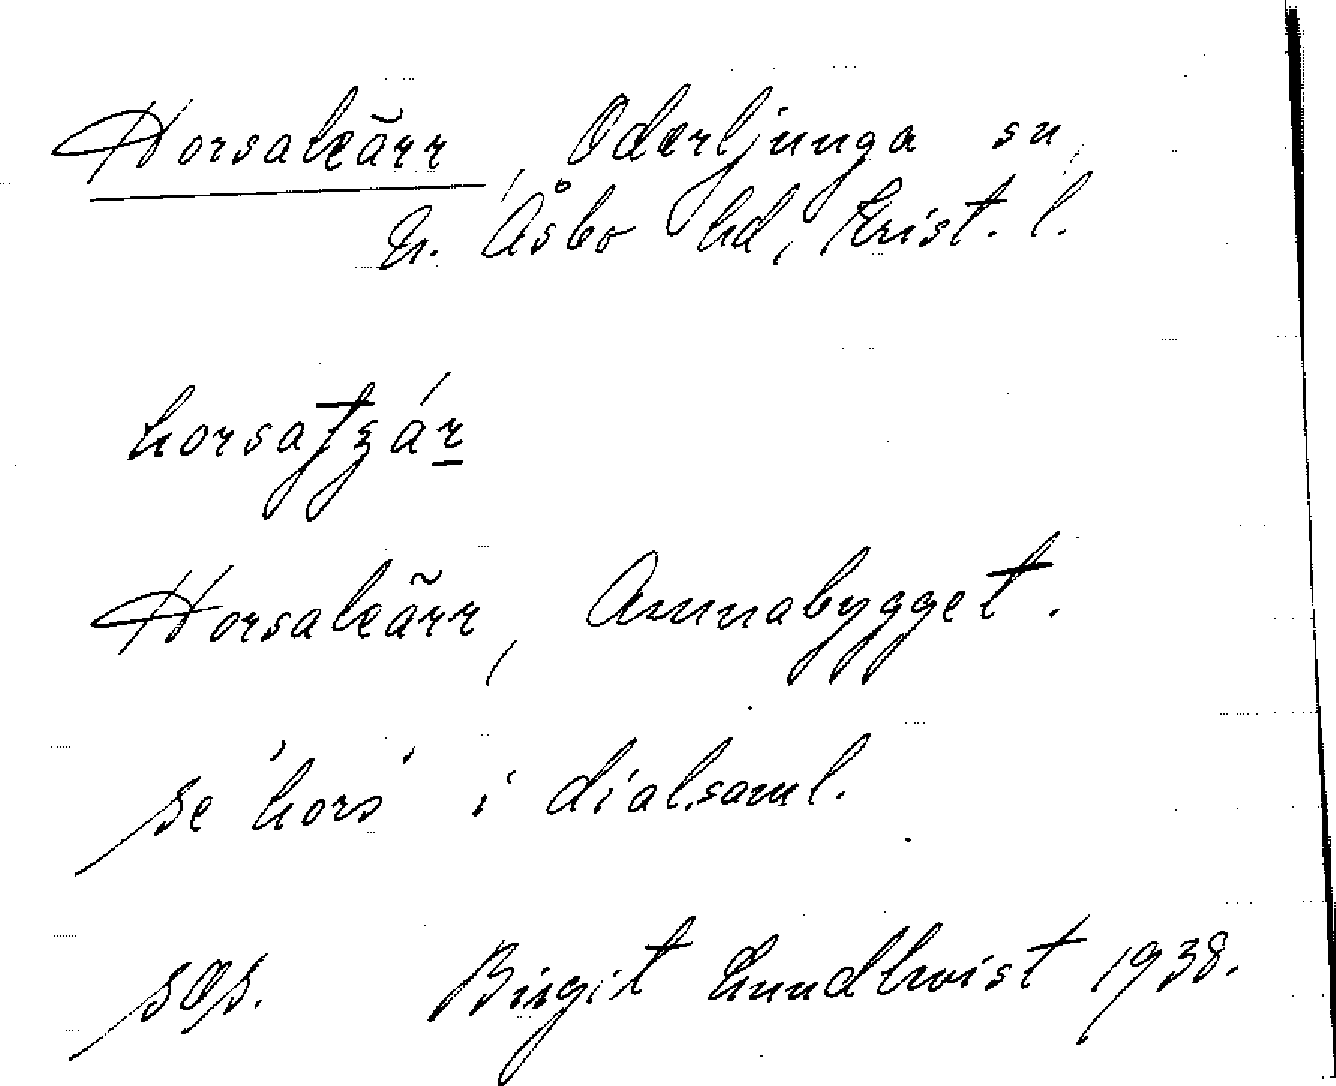 Horsakärr, Oderljunga sn,
N. Åsbo hd, Krist. l.
Horsakärr, Annabygget.
se 'hors' i dial.saml.
Birgit Lundkvist 1938.